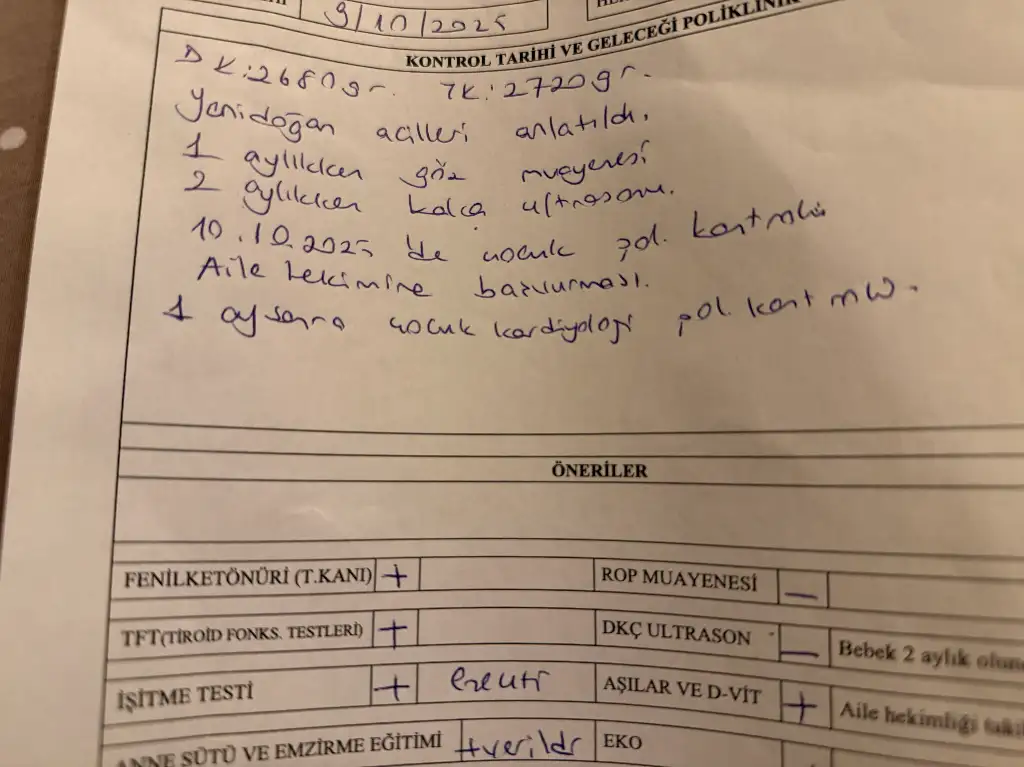 9/10/2025
KONTROL TARİHİ VE GELECEĞİ POLİKLİNİK
DK:2680gr. TK:2720gr.
Yenidoğan acilleri anlatıldı.
1 aylıkken göz muayenesi
2 aylıkken kalça ultrasonu.
10.10.2025 'de çocuk pol. kontrolü
Aile hekimine başvurması.
1 ay sonra çocuk kardiyoloji pol. kontrolü.
ÖNERİLER
FENİLKETÖNÜRİ (T.KANI) + ROP MUAYENESİ —
TFT(TİROİD FONKS. TESTLERİ) + DKÇ ULTRASON — Bebek 2 aylık
İŞİTME TESTİ + AŞILAR VE D-VİT + Aile hekimliği
ANNE SÜTÜ VE EMZİRME EĞİTİMİ +verildi EKO